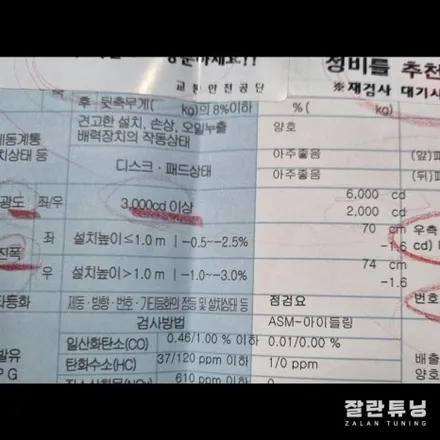 정비를 추천
※재검사 대기시
교통안전공단
후 뒷축무게( kg)의 8%이하 %( kg)
견고한 설치, 손상, 오일누출
배력장치의 작동상태 양호
제동계통
치상태 등
디스크·패드상태 아주좋음 (앞)
아주좋음 (뒤)
광도 좌/우 3,000cd 이상 6,000 cd
2,000 cd 우측
cd)
진폭 좌 설치높이≤1.0 m -0.5~-2.5% 70 cm
-1.6
우 설치높이>1.0 m -1.0~-3.0% 74 cm
-1.6
등화 제동·방향·번호·기타등화의 점등 및 설치상태 등 점검요 번호
검사방법 ASM-아이들링
발유
P G
일산화탄소(CO) 0.46/1.00 % 이하 0.01/0.00 %
탄화수소(HC) 37/120 ppm 이하 1/0 ppm 배출
610 ppm 이하 양호
잘란튜닝
ZALAN TUNING